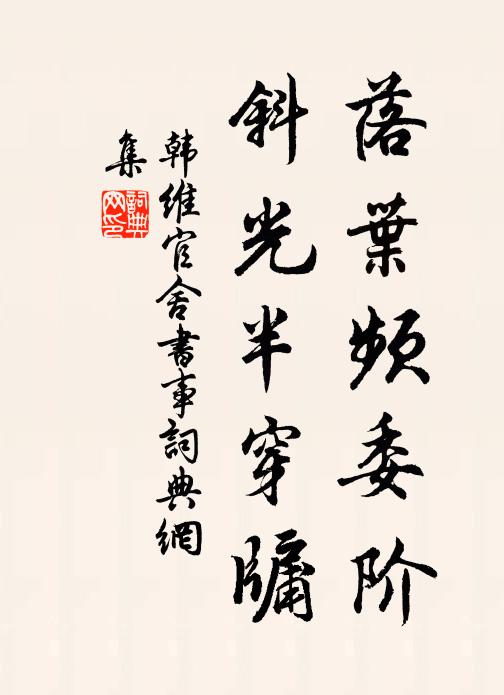 落葉頻委阶
斜光半穿牗
韩維官舍書事詞典網
集
詞典
网印